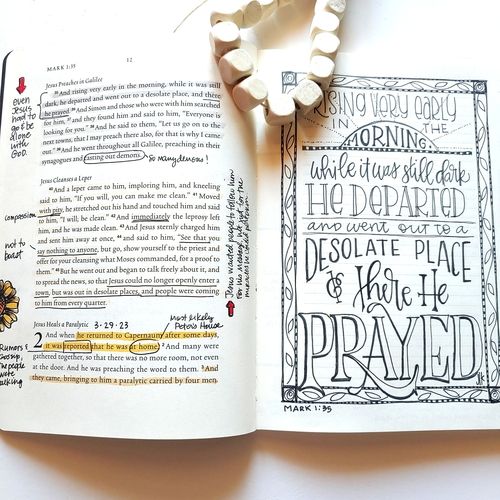 MARK 1:35
12
Jesus Preaches in Galilee
35 And rising very early in the morning, while it was still
dark, he departed and went out to a desolate place, and there
he prayed. 36 And Simon and those who were with him searched
for him, 37 and they found him and said to him, "Everyone is
looking for you." 38 And he said to them, "Let us go on to the
next towns, that I may preach there also, for that is why I came
out." 39 And he went throughout all Galilee, preaching in their
synagogues and casting out demons.
So many demons!
even
Jesus
had to
go & be
alone
with
God.
Jesus Cleanses a Leper
40 And a leper came to him, imploring him, and kneeling
said to him, "If you will, you can make me clean." 41 Moved
with pity, he stretched out his hand and touched him and said
to him, "I will; be clean." 42 And immediately the leprosy left
him, and he was made clean. 43 And Jesus sternly charged him
and sent him away at once, 44 and said to him, "See that you
say nothing to anyone, but go, show yourself to the priest and
offer for your cleansing what Moses commanded, for a proof to
them." 45 But he went out and began to talk freely about it, and
to spread the news, so that Jesus could no longer openly enter a
town, but was out in desolate places, and people were coming
to him from every quarter.
compassion
not to
boast
Jesus wanted people to follow him
for His message, not just for the
miracles he could perform
Jesus Heals a Paralytic
3·29·23
most likely
Peter's House
2 And when he returned to Capernaum after some days,
it was reported that he was at home. 2 And many were
gathered together, so that there was no more room, not even
at the door. And he was preaching the word to them. 3 And
they came, bringing to him a paralytic carried by four men.
Rumors &
Gossip,
The people
were
talking
RISING VERY EARLY
IN THE
MORNING,
while it was still dark
HE DEPARTED
and went out to a
DESOLATE PLACE
& there He
PRAYED.
MARK 1:35